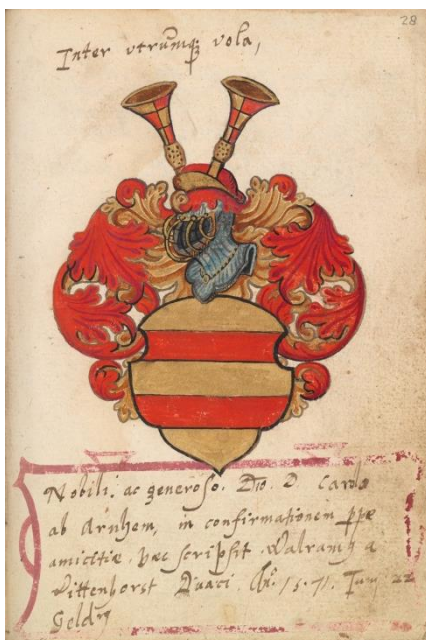 28
Inter utrumq; vola,
Nobili: ac generoso. Dno. D. Carolo
ab Arnhem, in confirmationem ppæ
amicitiæ hæc scripsit Walramꝰ a
Wittenhorst Duaci 15.71. Junij 22
Geldrꝰ